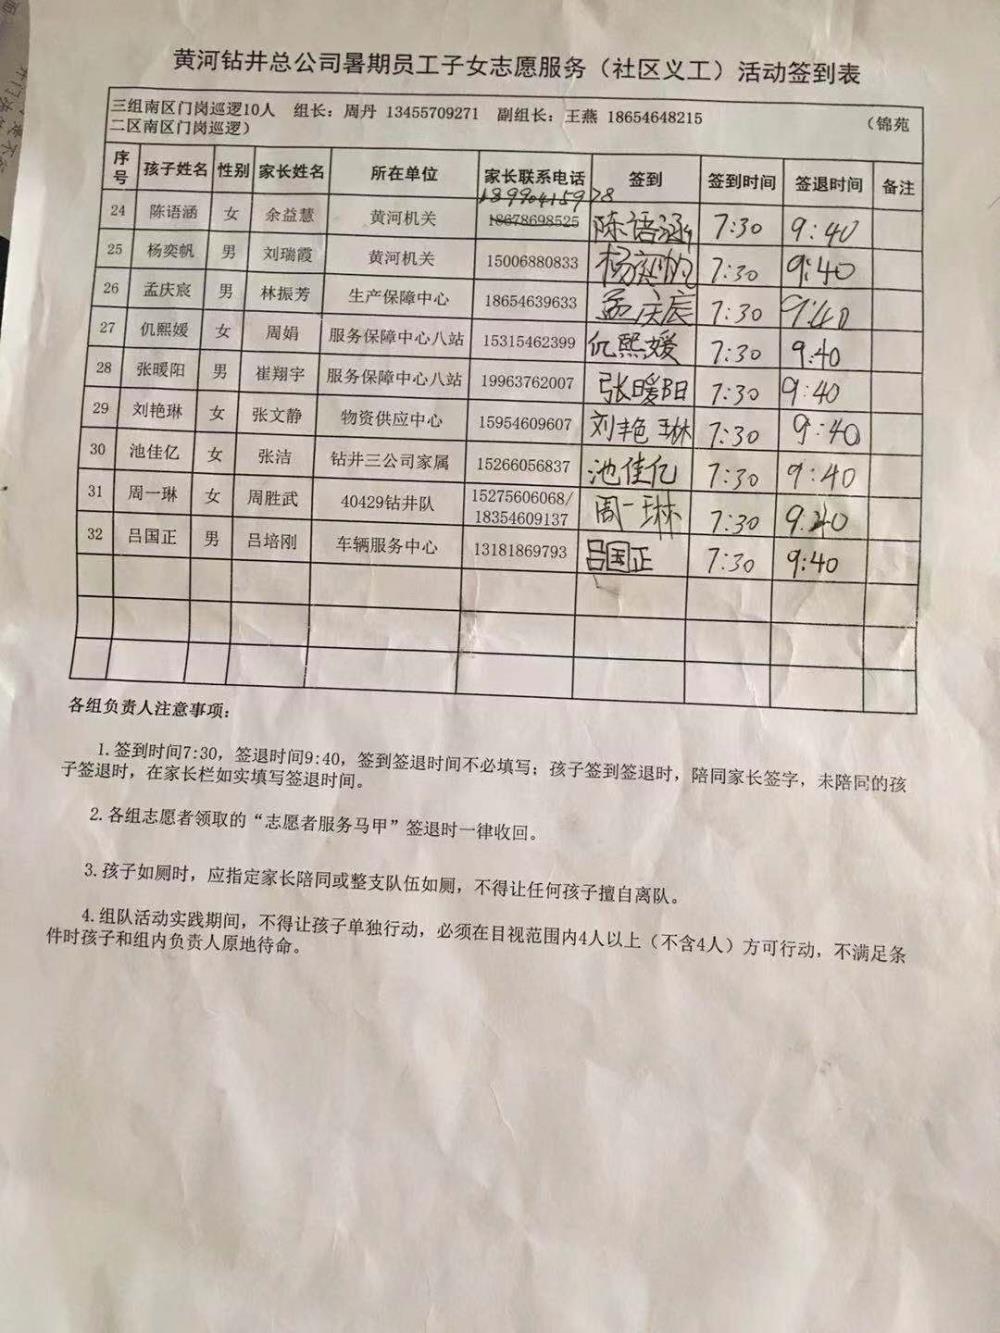 黄河钻井总公司暑期员工子女志愿服务（社区义工）活动签到表
三组南区门岗巡逻10人 组长：周丹 13455709271 副组长：王燕 18654648215 （锦苑
二区南区门岗巡逻）
序号 孩子姓名 性别 家长姓名 所在单位 家长联系电话 签到 签到时间 签退时间 备注
24 陈语涵 女 余益慧 黄河机关 18678698525 陈语涵 7:30 9:40
25 杨奕帆 男 刘瑞霞 黄河机关 15006880833 杨奕帆 7:30 9:40
26 孟庆宸 男 林振芳 生产保障中心 18654639633 孟庆宸 7:30 9:40
27 仉熙媛 女 周娟 服务保障中心八站 15315462399 仉熙媛 7:30 9:40
28 张暖阳 男 崔翔宇 服务保障中心八站 19963762007 张暖阳 7:30 9:40
29 刘艳琳 女 张文静 物资供应中心 15954609607 刘艳琳 7:30 9:40
30 池佳亿 女 张洁 钻井三公司家属 15266056837 池佳亿 7:30 9:40
31 周一琳 女 周胜武 40429钻井队 15275606068/ 18354609137 周一琳 7:30 9:40
32 吕国正 男 吕培刚 车辆服务中心 13181869793 吕国正 7:30 9:40
各组负责人注意事项：
1.签到时间7:30，签退时间9:40，签到签退时间不必填写；孩子签到签退时，陪同家长签字，未陪同的孩
子签退时，在家长栏如实填写签退时间。
2.各组志愿者领取的“志愿者服务马甲”签退时一律收回。
3.孩子如厕时，应指定家长陪同或整支队伍如厕，不得让任何孩子擅自离队。
4.组队活动实践期间，不得让孩子单独行动，必须在目视范围内4人以上（不含4人）方可行动，不满足条
件时孩子和组内负责人原地待命。